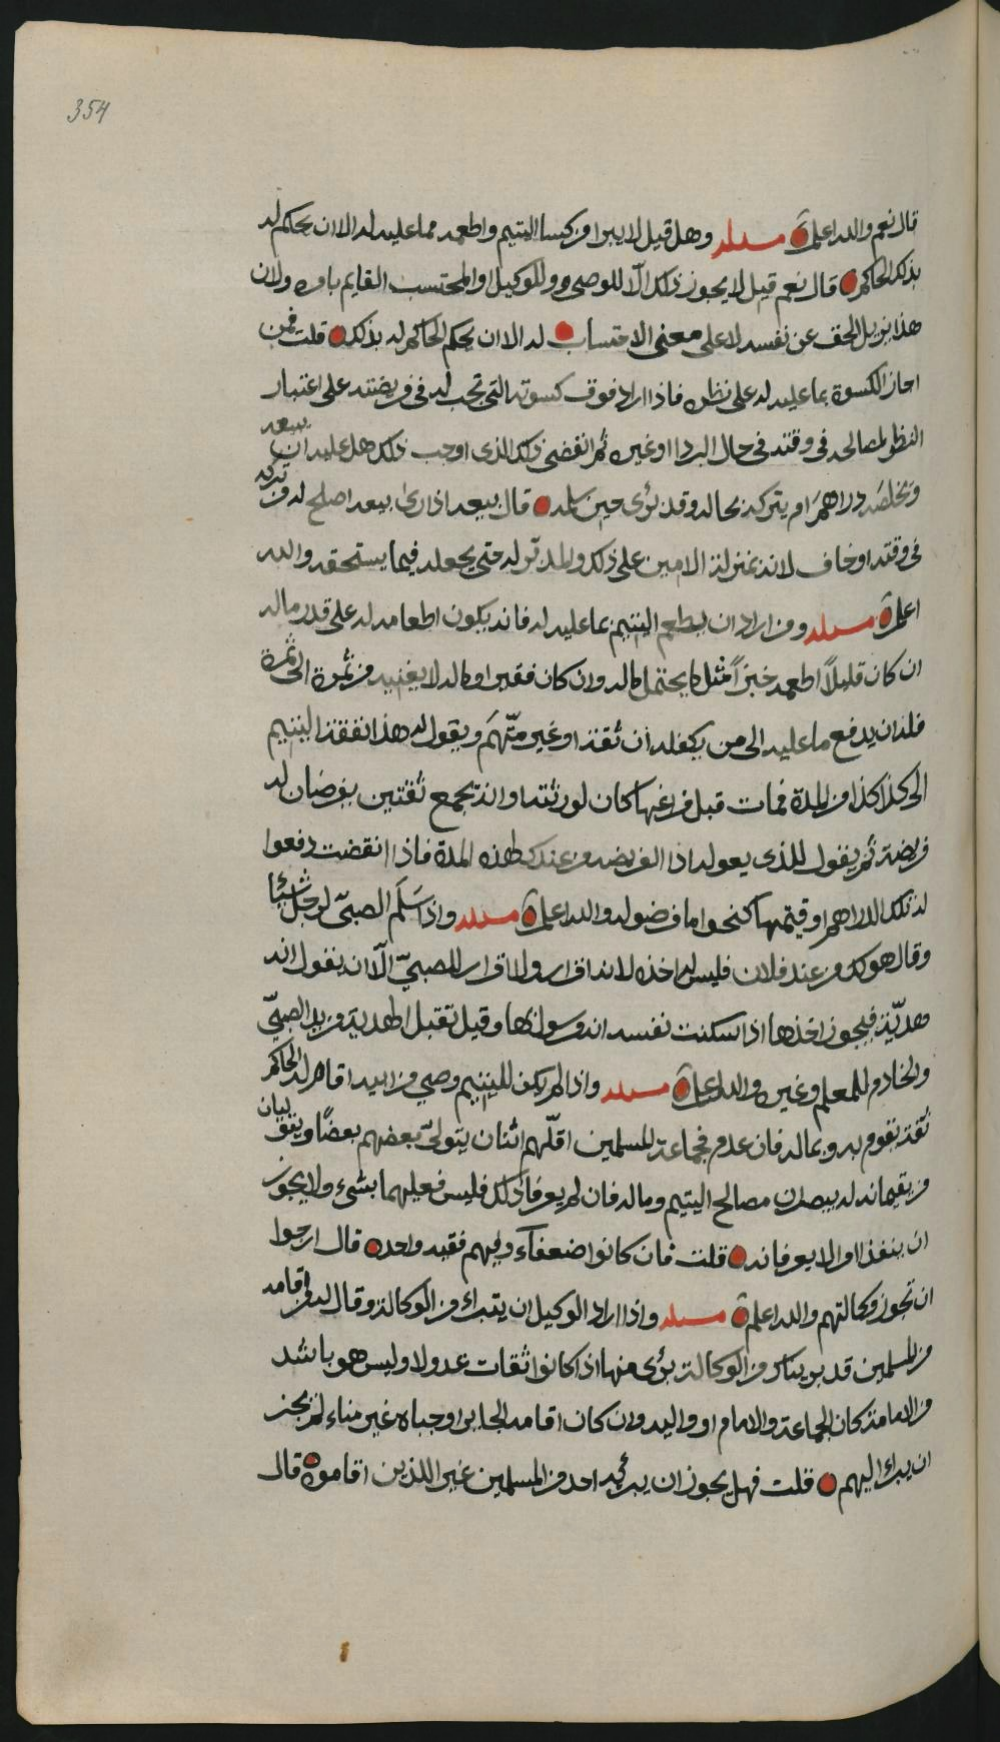 354
قال نعم والله اعلم مسئلة وهل قيل لا يبرا من كسا اليتيم واطعمه مما عليه له الا ان يحكم له
بذلك الحاكم قال نعم قيل لا يجوز ذلك الّا للوصي و وللوكيل او المحتسب القايم بامره ولان
هذا يزيل الحق عن نفسه لا على معنى الاحتساب له الا ان يحكم الحاكم له بذلك قلت فمن
اجاز الكسوة بما عليه له على نظره فاذا اراد فوق كسوته التي تجب له في فريضته على اعتبار
النظر لمصالحه في وقته في حال البرد او غيره ثم انقضى ذلك الذي اوجب ذلك هل عليه ان يبيعه
ويخلصه دراهمَ ام يتركه بحاله وقد برئ حين سلمه قال يبيعه اذا رئ بيعه اصلح له من تركه
في وقته او خاف لانه بمنزلة الامين على ذلك والمدبر له حتى يجعله فيما يستحقه والله
اعلم مسئلة ومن اراد ان يطعم اليتيم بما عليه له فانه يكون اطعامه له على قدر ماله
ان كان قليلاً اطعمه خبزاً مثل ما يحتمل ماله وان كان فقيرا وماله لا يغنيه من ثمرة الى ثمرة
فله ان يدفع ما عليه الى من يكفله ان ثقة او غير متّهمَ ويقول له هذا نفقة اليتيم
الى كذا كذا من المدة فمات قبل فراغها كان لورثته وانه يجمع ثقتين يفرضان له
فريضة ثم يقول للذي يعوله اذا الفريضه من عندك لهذه المدة فاذا انقضت دفعوا
له تلك الدراهم او قيمتها كنحو اما فرضوا له والله اعلم مسئلة واذا سَلَم الصبيّ لرجل شيئا
وقال هو لك من عند فلان فليس له اخذه لانه اقرار ولا اقرار للصبيّ الّا ان يقول انه
هديّة فيجوز اخذها اذا سكنت نفسه انه رسول بها وقيل تقبل الهدية من يد الصبيّ
والخادم للمعلم وغيره والله اعلم مسئلة واذا لم يكن لليتيم وصي من ابيه اقام له الحاكم
ثقة يقوم به وبماله فان عدم فجماعة المسلمين اقلّهم اثنان يتولىّ بعضهم بعضًا ويثقان
من يقيمانه له يبصران مصالح اليتيم وماله فان لم يعرفا ذلك فليس فعلهما بشيء ولا يجوز
ان ينفذا او الا يعرفانه قلت فان كانوا ضعفآء وفيهم فقيه واحده قال ارجوا
ان تجوز وكالتهم والله اعلم مسئلة واذا اراد الوكيل ان يتبراء من الوكالة وقال لمن اقامه
من المسلمين قد بريتك من الوكالة برئ منها اذا كانوا ثقات عدولا وليس هو باشد
من الامامة كان الجماعة والامام او واليه وان كان اقامه الجابر او جباه غير مناء لم يجز
ان يبرا اليهم قلت فهل يجوز ان يبريه احد من المسلمين غير اللذين اقاموه قال